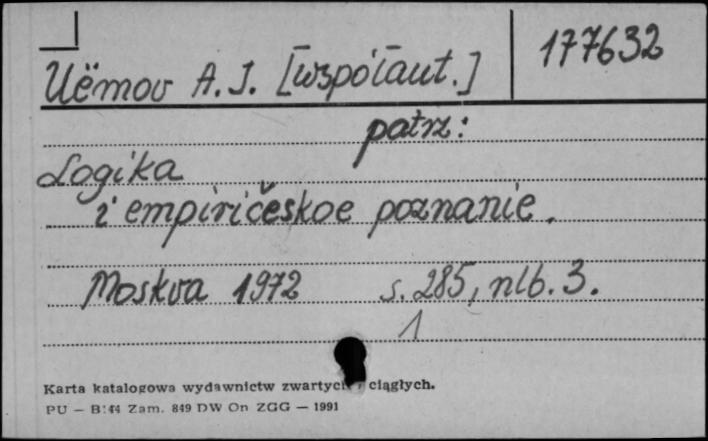 177632
Uëmov A.I. [współaut.]
patrz:
Logika
i empiričeskoe poznanie.
Moskva 1972 s. 285, nlb. 3.
1
Karta katalogowa wydawnictw zwartych ciągłych.
PU — B/44 Zam. 849 DW On ZGG — 1991